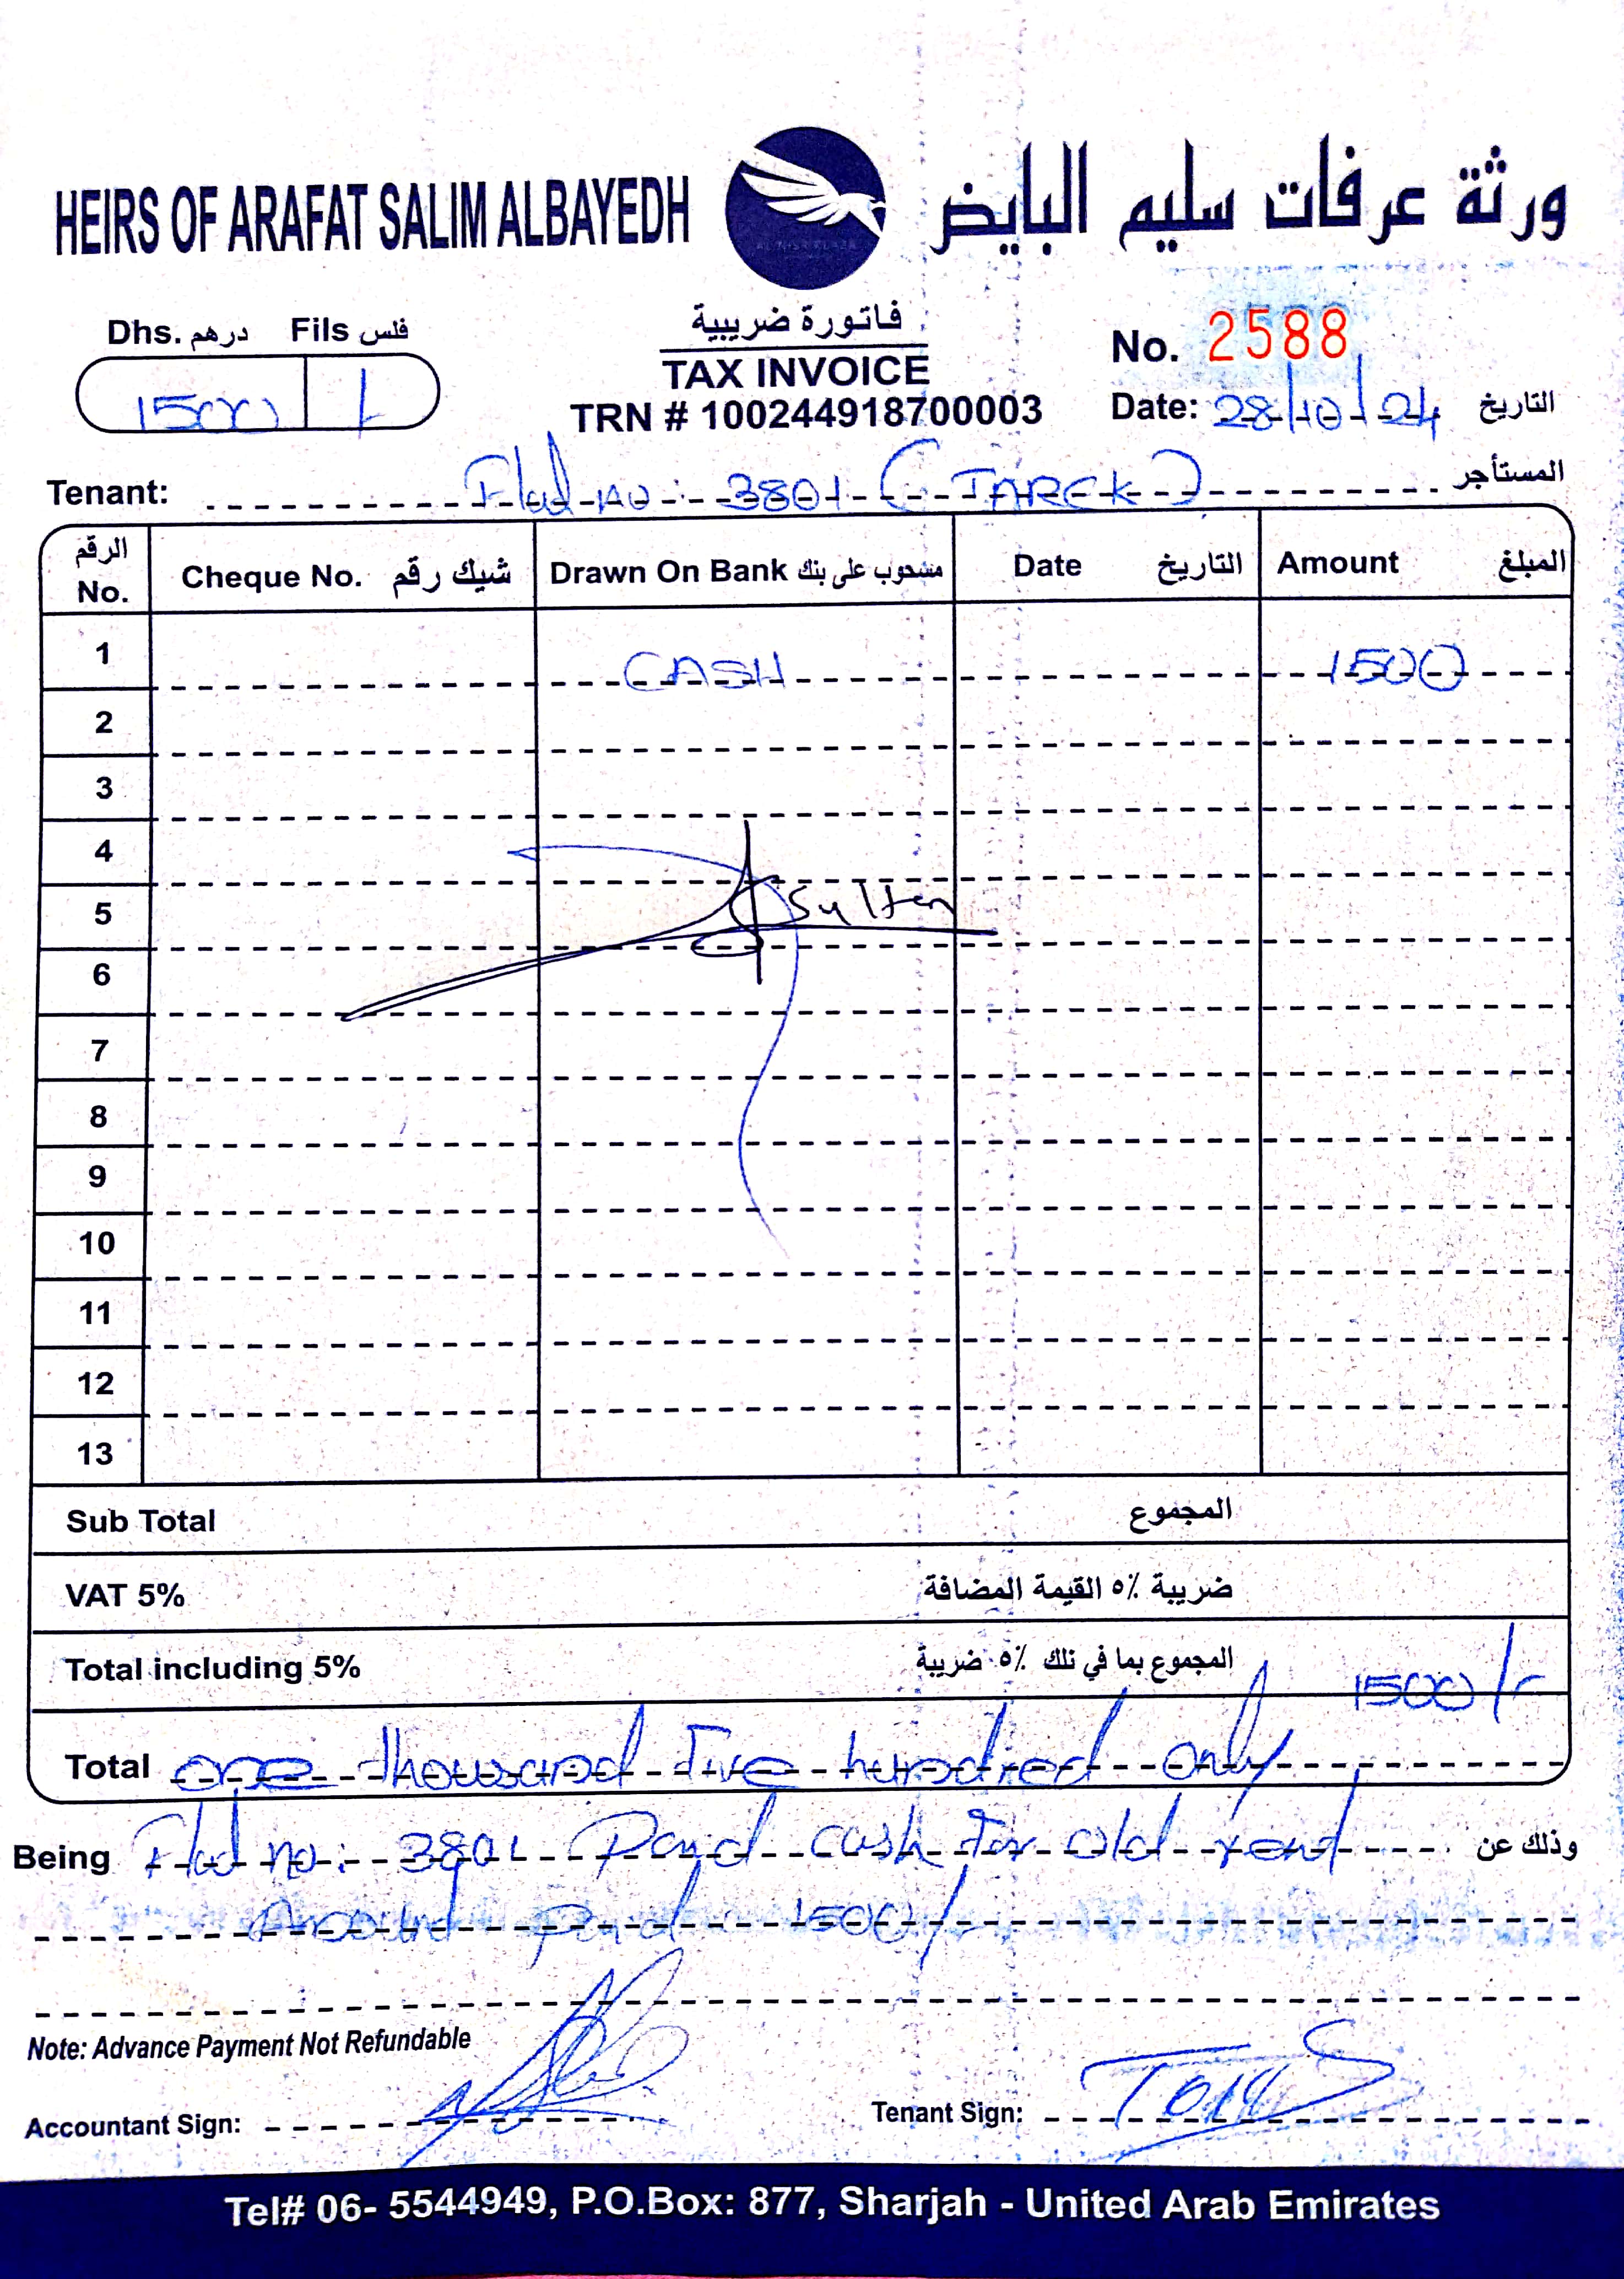 HEIRS OF ARAFAT SALIM ALBAYEDH
ورثة عرفات سليم البايض
AL NISR PLAZA
Dhs. درهم Fils فلس
1500 /-
فاتورة ضريبية
TAX INVOICE
TRN # 100244918700003
No. 2588
Date: 28/10/24 التاريخ
Tenant: Flat no: 3801 (TAREK) المستأجر
الرقم No. Cheque No. شيك رقم Drawn On Bank مسحوب على بنك Date التاريخ Amount المبلغ
1 CASH 1500
2
3
4
5 Sultan
6
7
8
9
10
11
12
13
Sub Total المجموع
VAT 5% ضريبة ٥٪ القيمة المضافة
Total including 5% المجموع بما في ذلك ٥٪ ضريبة 1500/-
Total one thousand five hundred only
Being Flat no: 3801 Paid cash for old rent وذلك عن
Amount Paid 1500/-
Note: Advance Payment Not Refundable
Accountant Sign:
Tenant Sign:
Tel# 06- 5544949, P.O.Box: 877, Sharjah - United Arab Emirates